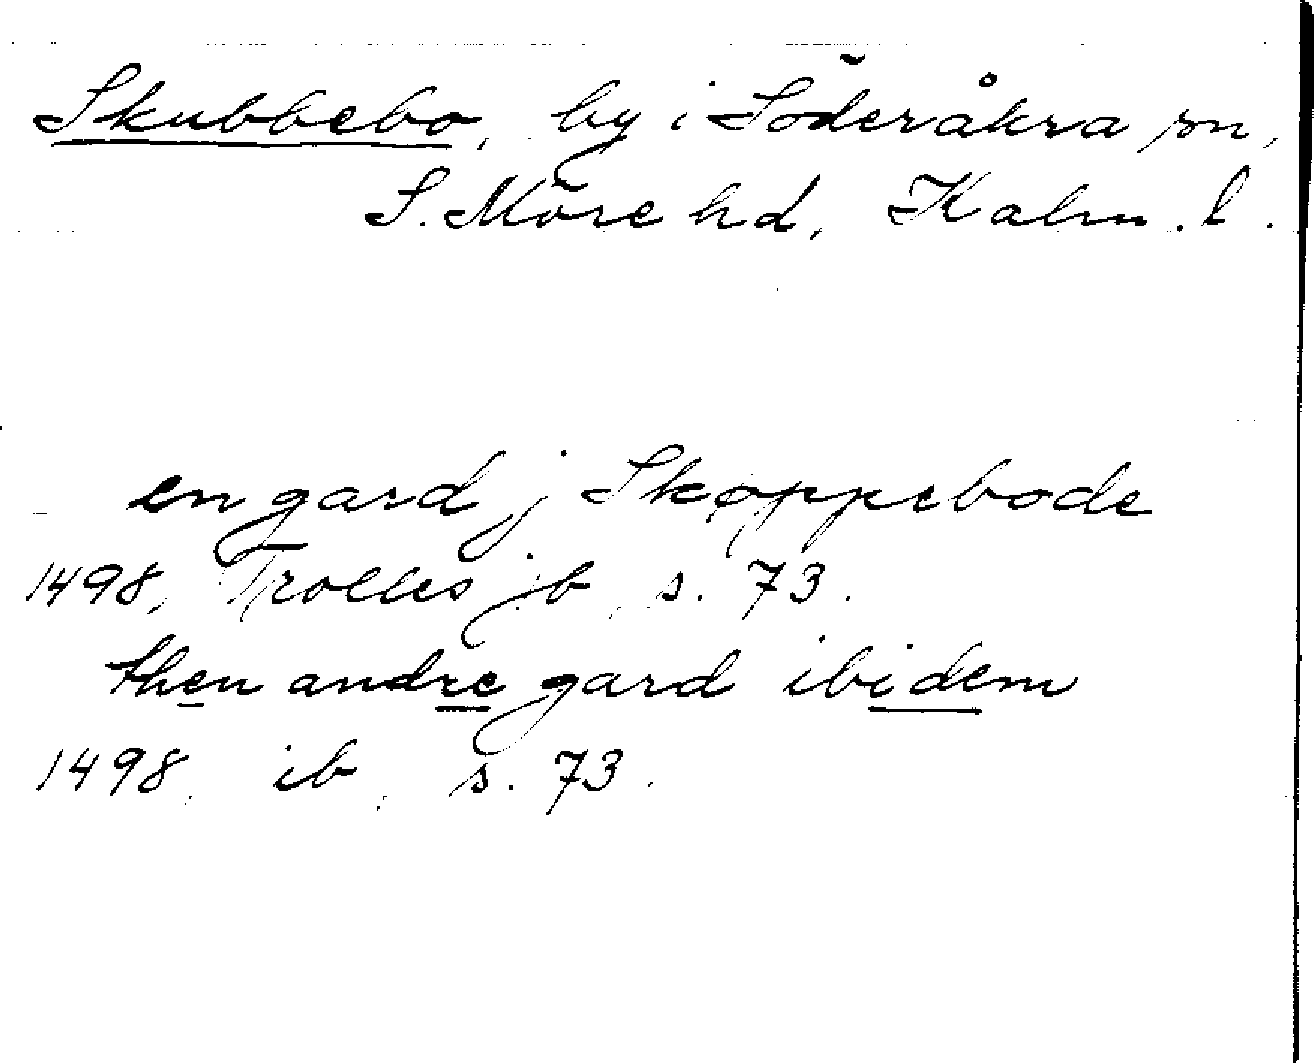 Skubbebo, by i Söderåkra sn,
S. Möre hd, Kalm. l.
en gard j Skøppebode
1498, Trolles jb, s. 73.
then andre gard ibidem
1498, ib, s. 73.